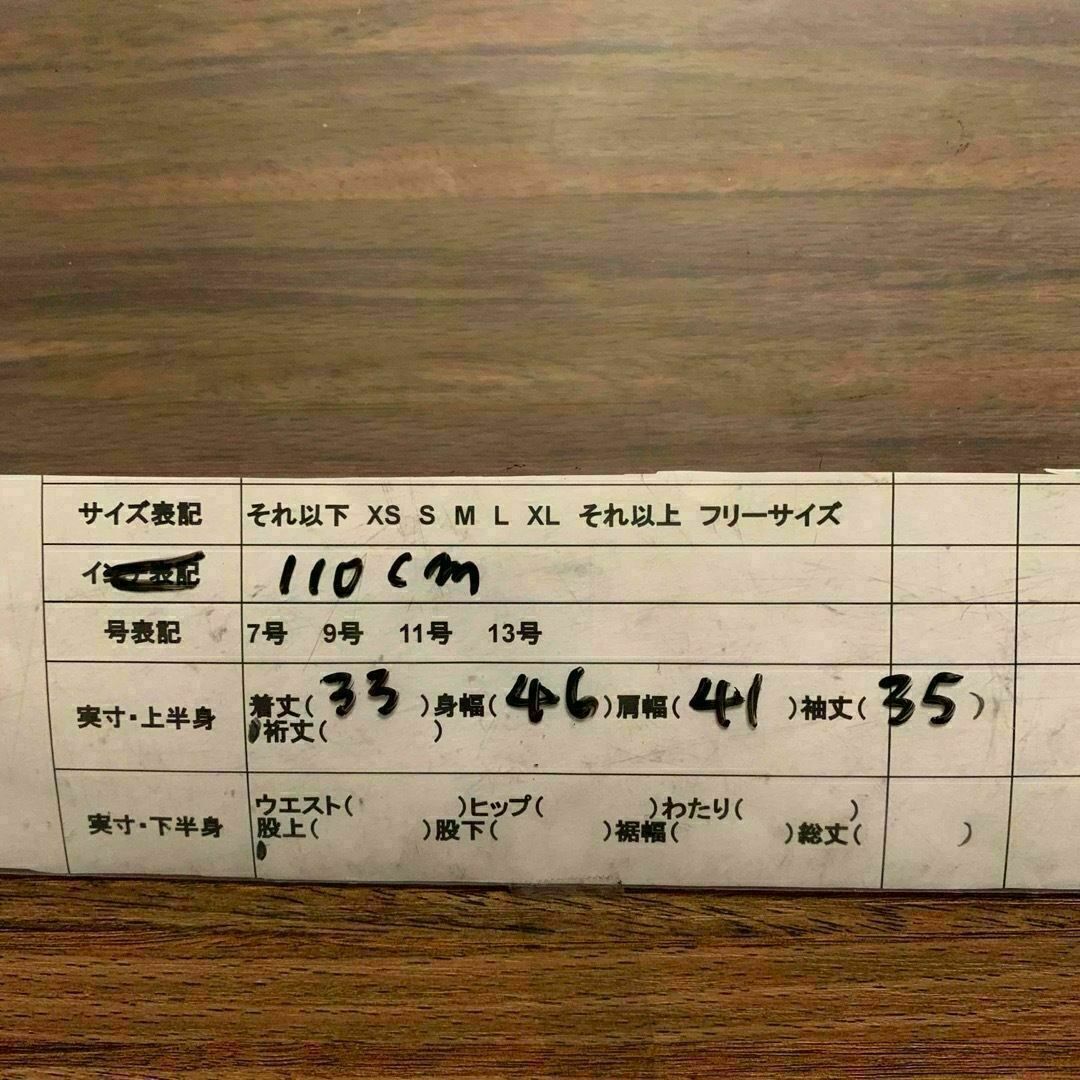 サイズ表記 それ以下 XS S M L XL それ以上 フリーサイズ
表記 110cm
号表記 7号 9号 11号 13号
実寸・上半身 着丈( 33 )身幅( 46 )肩幅( 41 )袖丈( 35 )
裄丈( )
実寸・下半身 ウエスト( )ヒップ( )わたり( )
股上( )股下( )裾幅( )総丈( )